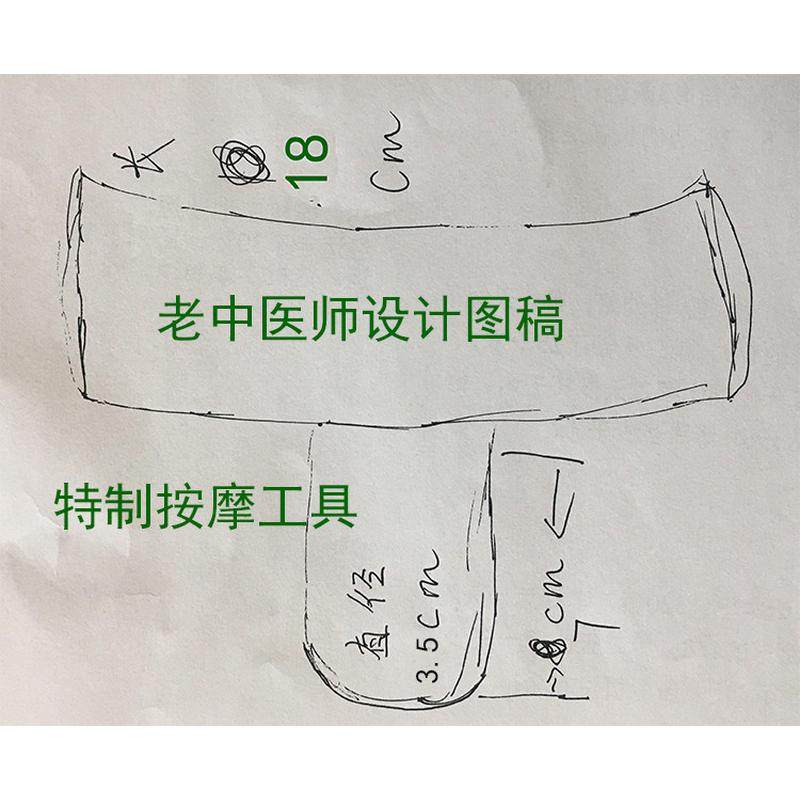 长 18 cm
老中医师设计图稿
特制按摩工具
直径
3.5cm
7 cm